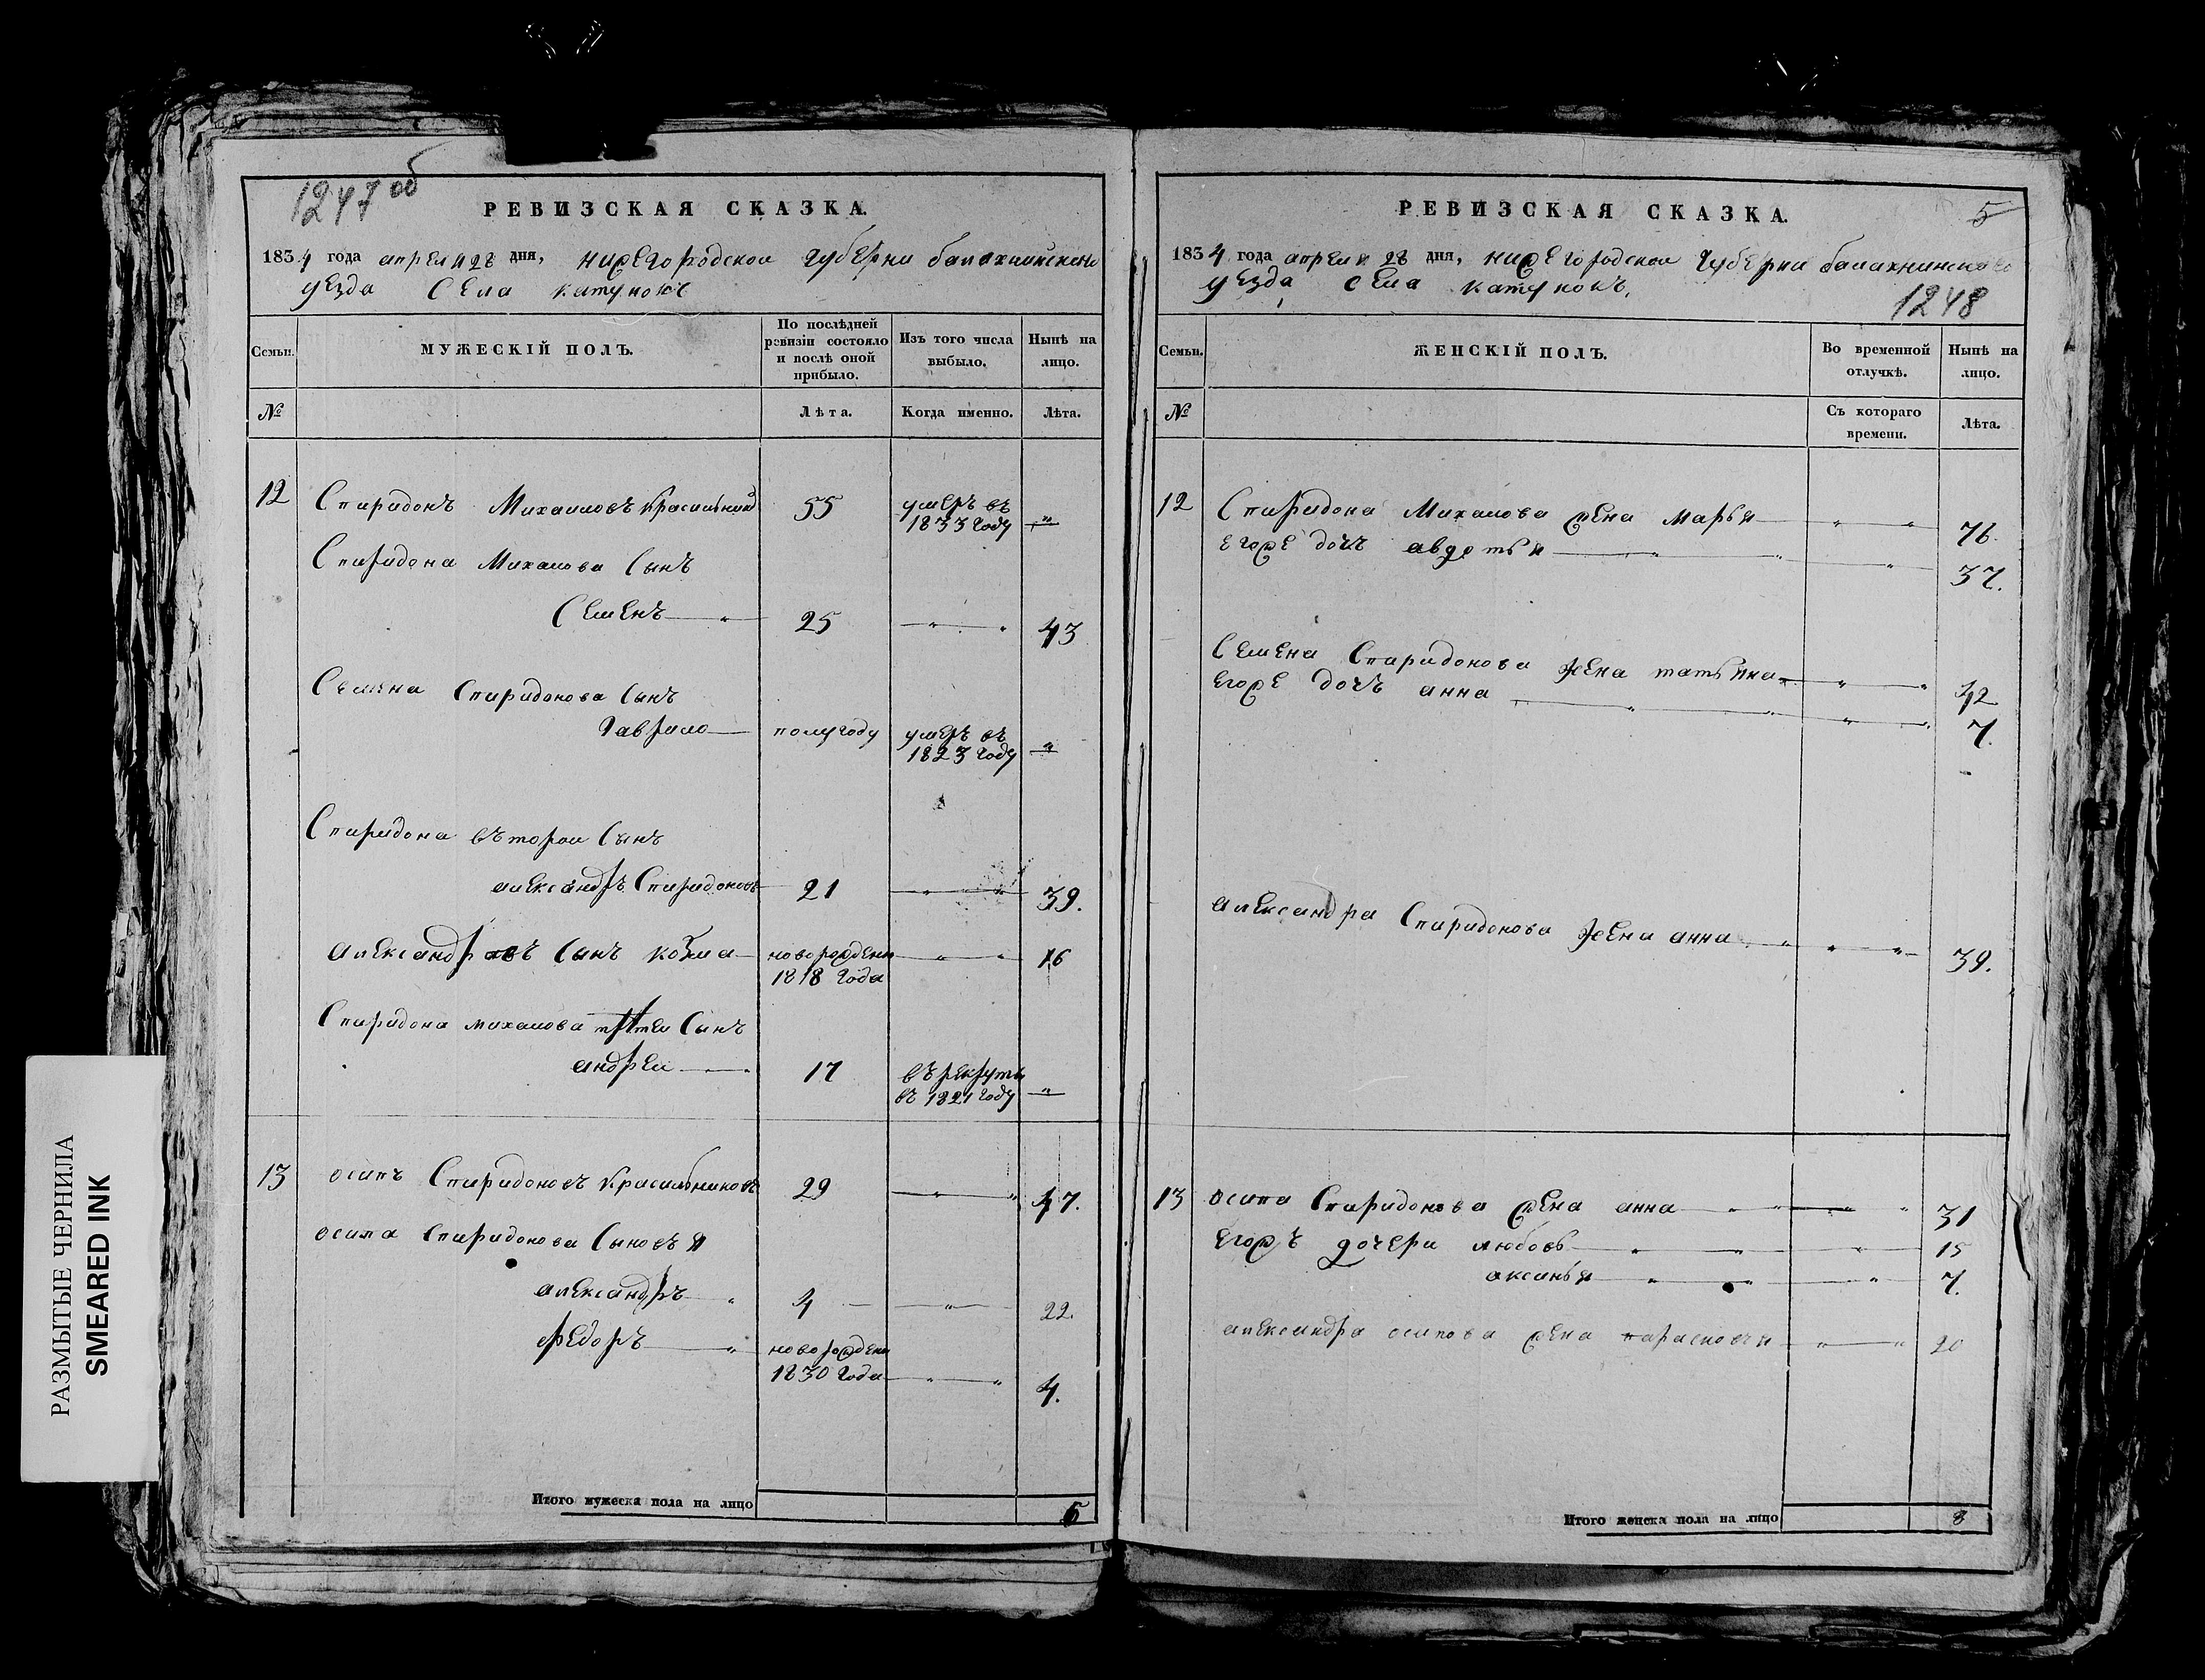 1247 об
РЕВИЗСКАЯ СКАЗКА.
1834 года апреля 28 дня, нижегородской губерни балахнинскаго
уезда села катунокъ
Семьи.
МУЖЕСКІЙ ПОЛЪ.
По послѣдней
ревизіи состояло
и послѣ оной
прибыло.
Изъ того числа
выбыло.
Нынѣ на
лицо.
№
Лѣта.
Когда именно.
Лѣта.
12 Спиридонъ Михаиловъ 55 умеръ въ
1833 году "
Спиридона Михаилова Сынъ
Семенъ " 25 " " 43
Семена Спиридонова Сынъ
Гаврило полугоду умеръ въ
1823 году "
Спиридона въторои Сынъ
александръ Спиридоновъ 21 " " 39.
александровъ Сынъ козма новорожденъ " " 16
1818 года
Спиридона михаилова третеи Сынъ
андреи 17 въ рекруты
въ 1821 году "
13 осипъ Спиридоновъ Красильниковъ 29 " " 47.
осипа Спиридонова Сыновья
александръ " 4 " 22.
федоръ " новорожденъ
1830 года " " 4.
Итого мужеска пола на лицо 6
РЕВИЗСКАЯ СКАЗКА.
5
1834 года апреля 28 дня, нижегородской губерни балахнинскаго
уезда села катунокъ,
1248
Семьи.
ЖЕНСКІЙ ПОЛЪ.
Во временной
отлучкѣ.
Нынѣ на
лицо.
№
Съ котораго
времени.
Лѣта.
12 Спиридона Михаилова жена марья " " 76.
егоже дочъ авдотья " " " 37.
Семена Спиридонова жена татьяна " " 42
егоже дочъ анна " " " " 7.
александра Спиридонова жена анна " " " 39.
13 осипа Спиридонова жена анна " " " " 31
егожъ дочери любовь " " " 15
аксинья " " " " 7.
александра осипова жена парасковья " " 20
Итого женска пола на лицо 8
РАЗМЫТЫЕ ЧЕРНИЛА
SMEARED INK